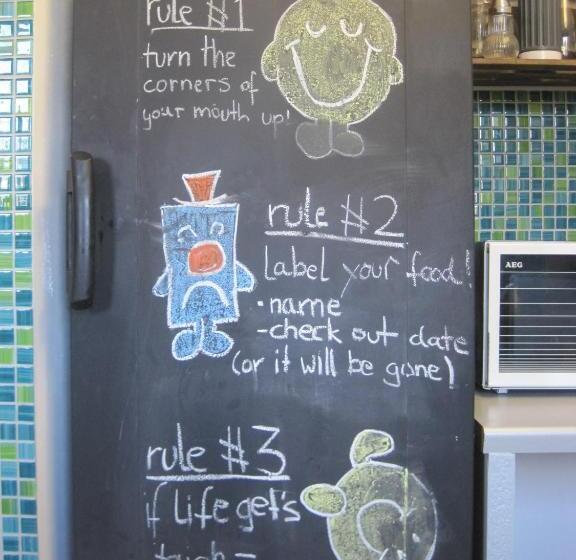 rule #1
turn the
corners of
your mouth up!
rule #2
Label your food!
• name
- check out date
(or it will be gone)
rule #3
if Life get's
tough -
AEG